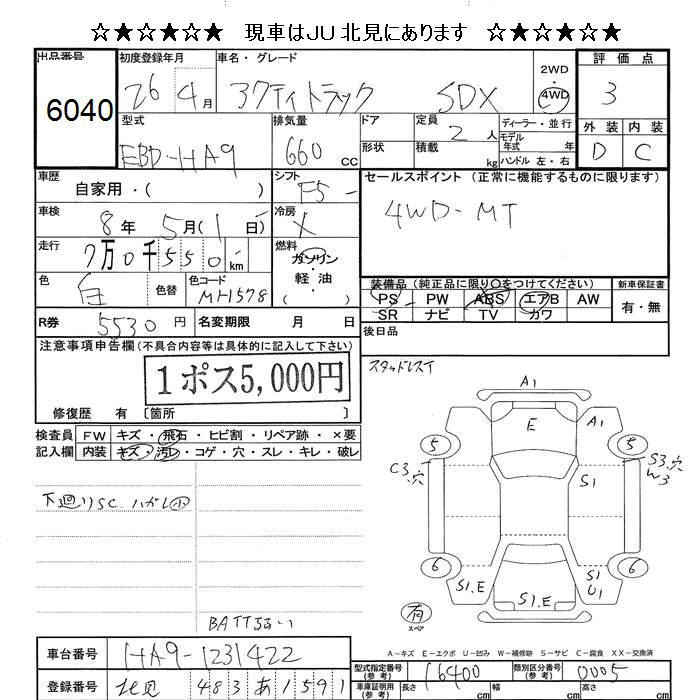 ☆★☆★☆★ 現車はJU北見にあります ☆★☆★☆★
出品番号 初度登録年月 車名・グレード 2WD ・ 4WD 評価点
6040 26 4月 アクティトラック SDX 3
型式 排気量 ドア 定員 2人 ディーラー・並行 外装 内装
EBD-HA9 660cc 形状 積載 kg モデル年式 年 ハンドル 左・右 D C
車歴 自家用・( ) シフト F5 セールスポイント(正常に機能するものに限ります)
車検 8年5月(1日) 冷房 X 4WD-MT
走行 7万0千550km 燃料 ガソリン・軽油
色 白 色替 色コード NH578 装備品(純正品に限り○をつけてください) 新車保証書
PS PW ABS エアB AW 有・無
SR ナビ TV カワ
R券 5530円 名変期限 月 日 後日品
注意事項申告欄(不具合内容等は具体的に記入して下さい) スタッドレスイ
1ポス5,000円
修復歴 有 [箇所 ]
検査員 FW キズ・飛石・ヒビ割・リペア跡・×要
記入欄 内装 キズ・汚レ・コゲ・穴・スレ・キレ・破レ
A1
E A1
5 5
C3.穴 S3.穴
S1 W3
下廻りSC.ハガレ小
6 6
S1.E S1.E S1
U1
有
スペア
BATTよわい
A-キズ E-エクボ U-凹み W-補修跡 S-サビ C-腐食 XX-交換済
車台番号 HA9-1231422 型式指定番号(参考) 16400 類別区分番号(参考) 0005
登録番号 北見 483 あ 1591 車庫証明用(参考) 長さ cm 幅 cm 高さ cm